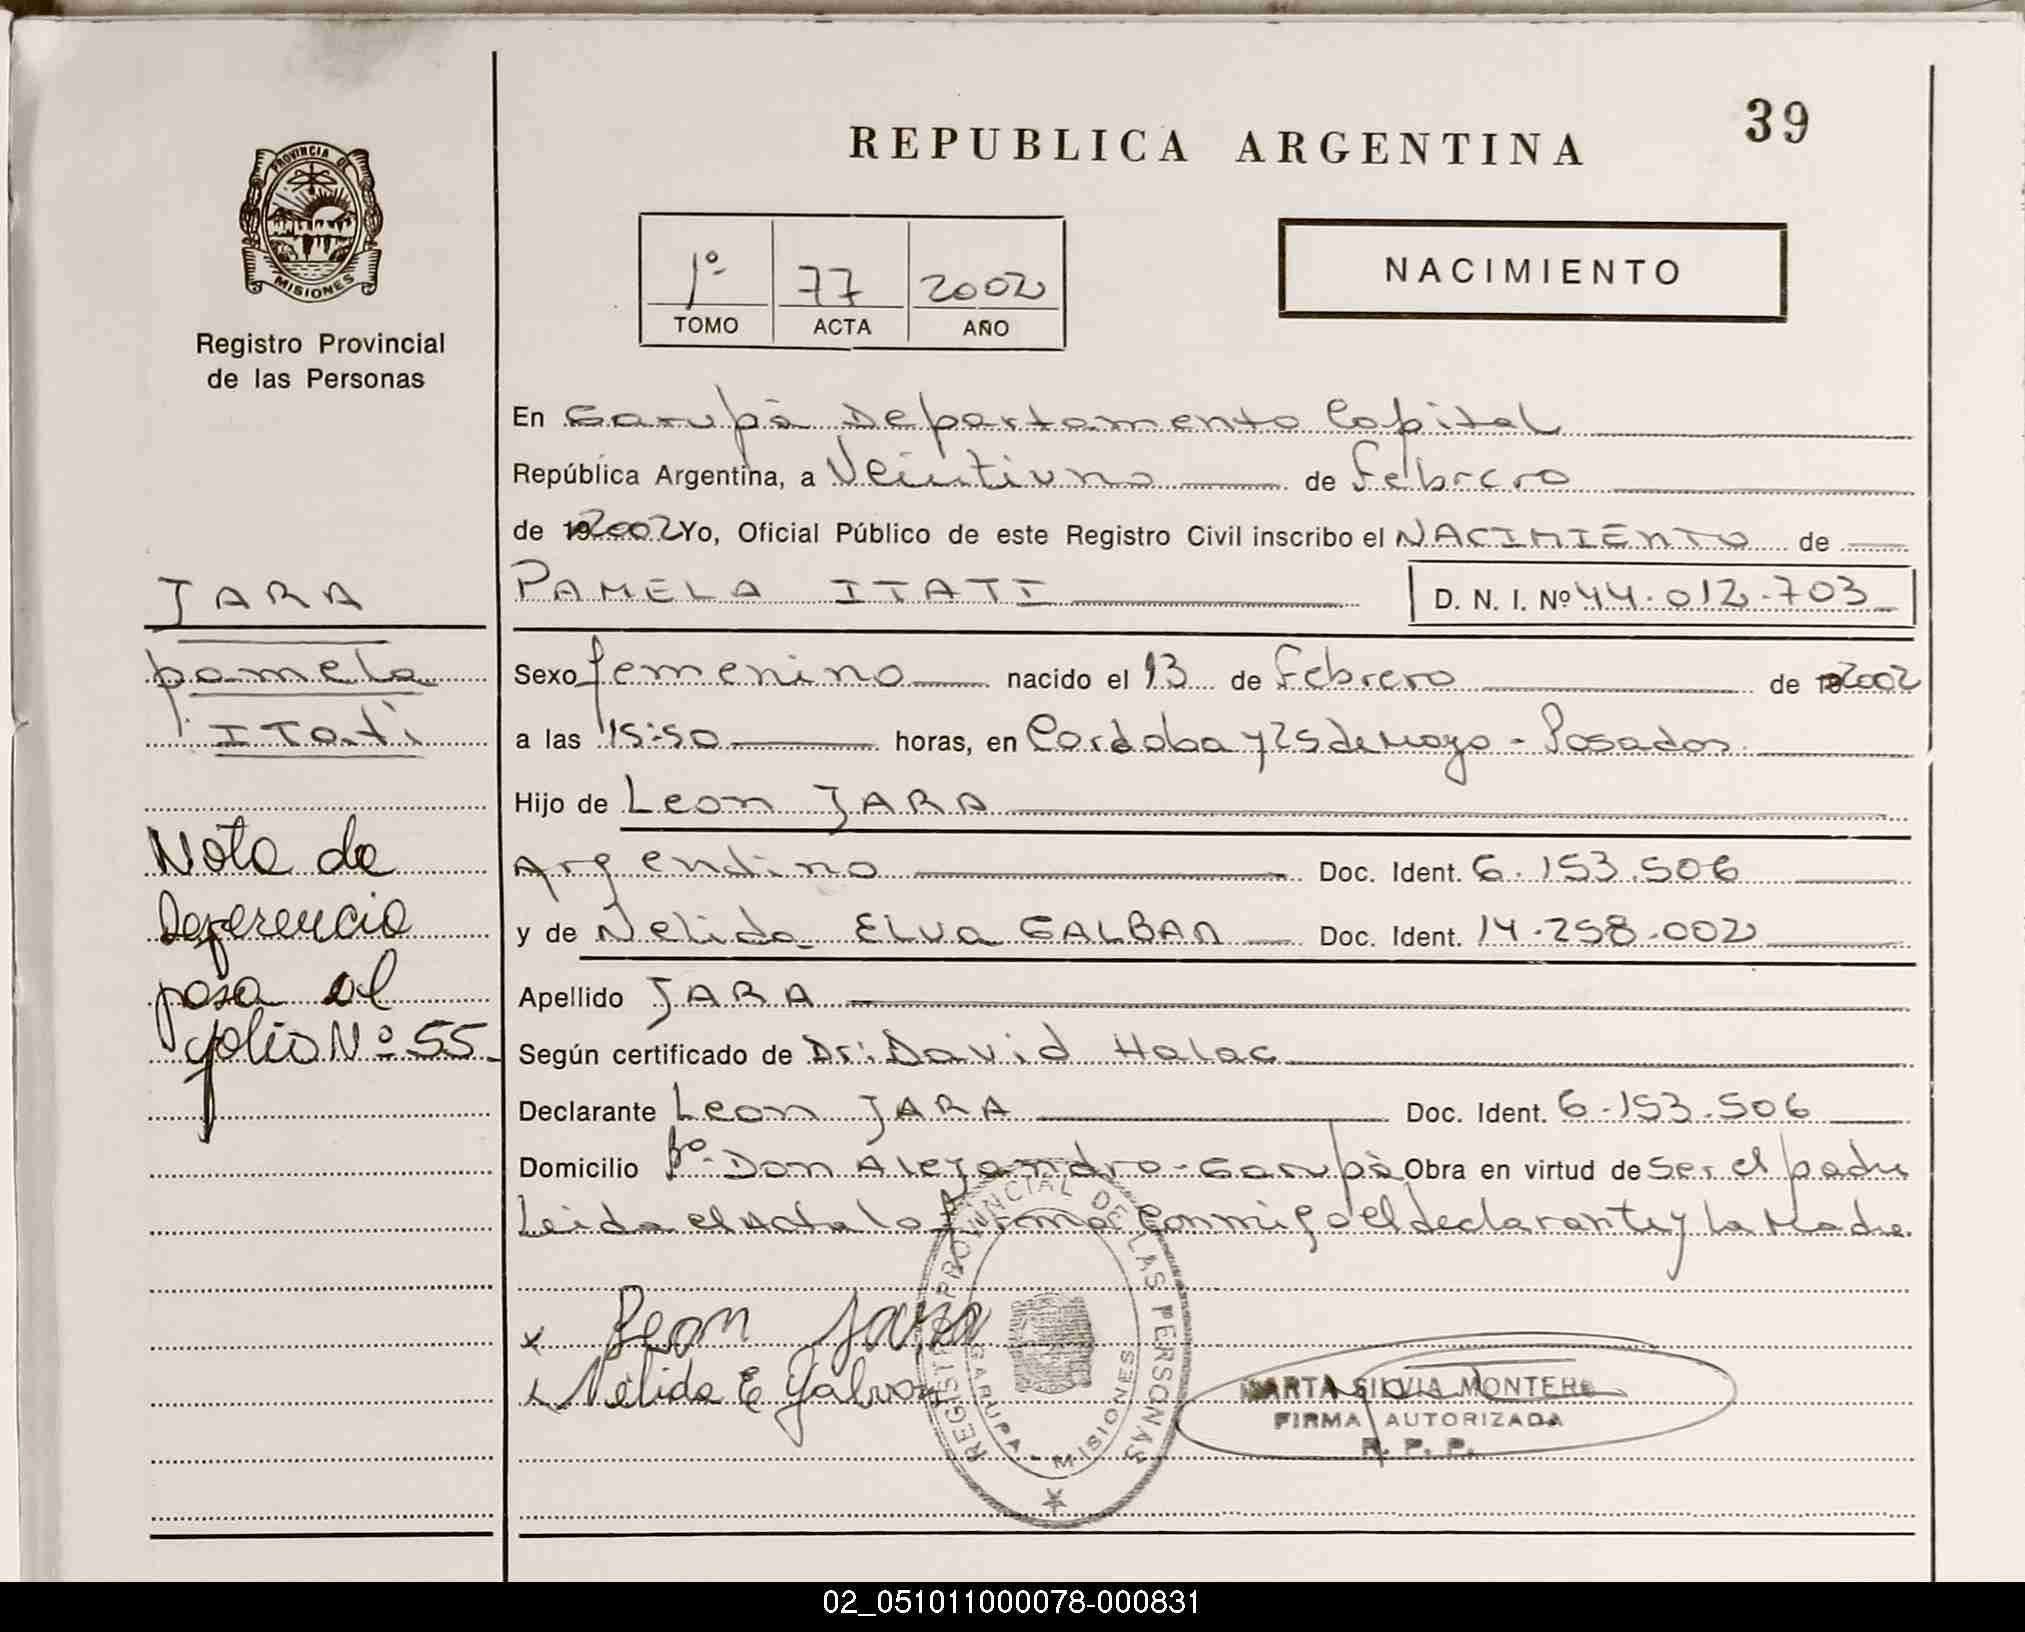 39
REPUBLICA ARGENTINA
PROVINCIA D
MISIONES
Registro Provincial
de las Personas
1º 77 2002
TOMO ACTA AÑO
NACIMIENTO
En Garupà Departamento Capital
República Argentina, a Veintiuno de Febrero
de 2002 Yo, Oficial Público de este Registro Civil inscribo el NACIMIENTO de
PAMELA ITATI D. N. I. Nº 44.012.703
Sexo femenino nacido el 13 de Febrero de 2002
a las 15:50 horas, en Cordoba y 25 de Mayo - Posadas
Hijo de Leon JARA
Argentino Doc. Ident. 6.153.506
y de Nelida ELVA GALBAN Doc. Ident. 14.258.002
Apellido JARA
Según certificado de Dr: David Halac
Declarante Leon JARA Doc. Ident. 6.153.506
Domicilio Bº. Don Alejandro - Garupà Obra en virtud de ser el padre
Leida el Acta la firma conmigo el declarante y la Madre
x Leon Jara
x Nélida E Galvan
JARA
pamela
ITati
Nota de
Deferencia
pasa al
folio Nº 55
REGISTRO PROVINCIAL DE LAS PERSONAS
GARUPA - MISIONES
MARTA SILVIA MONTERO
FIRMA AUTORIZADA
R. P. P.
02_051011000078-000831